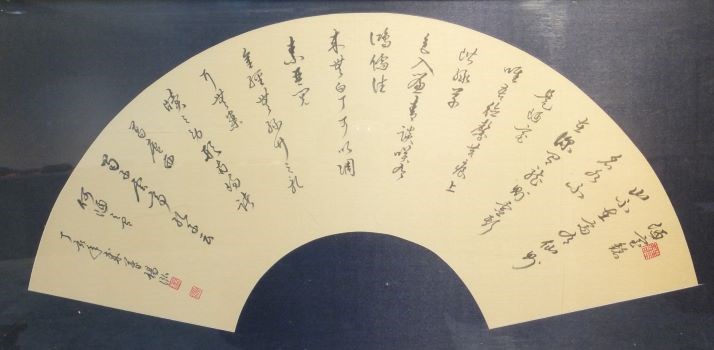 陋室銘
山不在高有仙則
名水不
在深有龍則靈斯
是陋室
唯吾德馨苔痕上
階綠草
色入簾青談笑有
鴻儒往
來無白丁可以調
素琴閱
金經無絲竹之亂
耳無案
牘之勞形南陽諸
葛廬西
蜀子雲亭孔子云
何陋之有
丁亥年